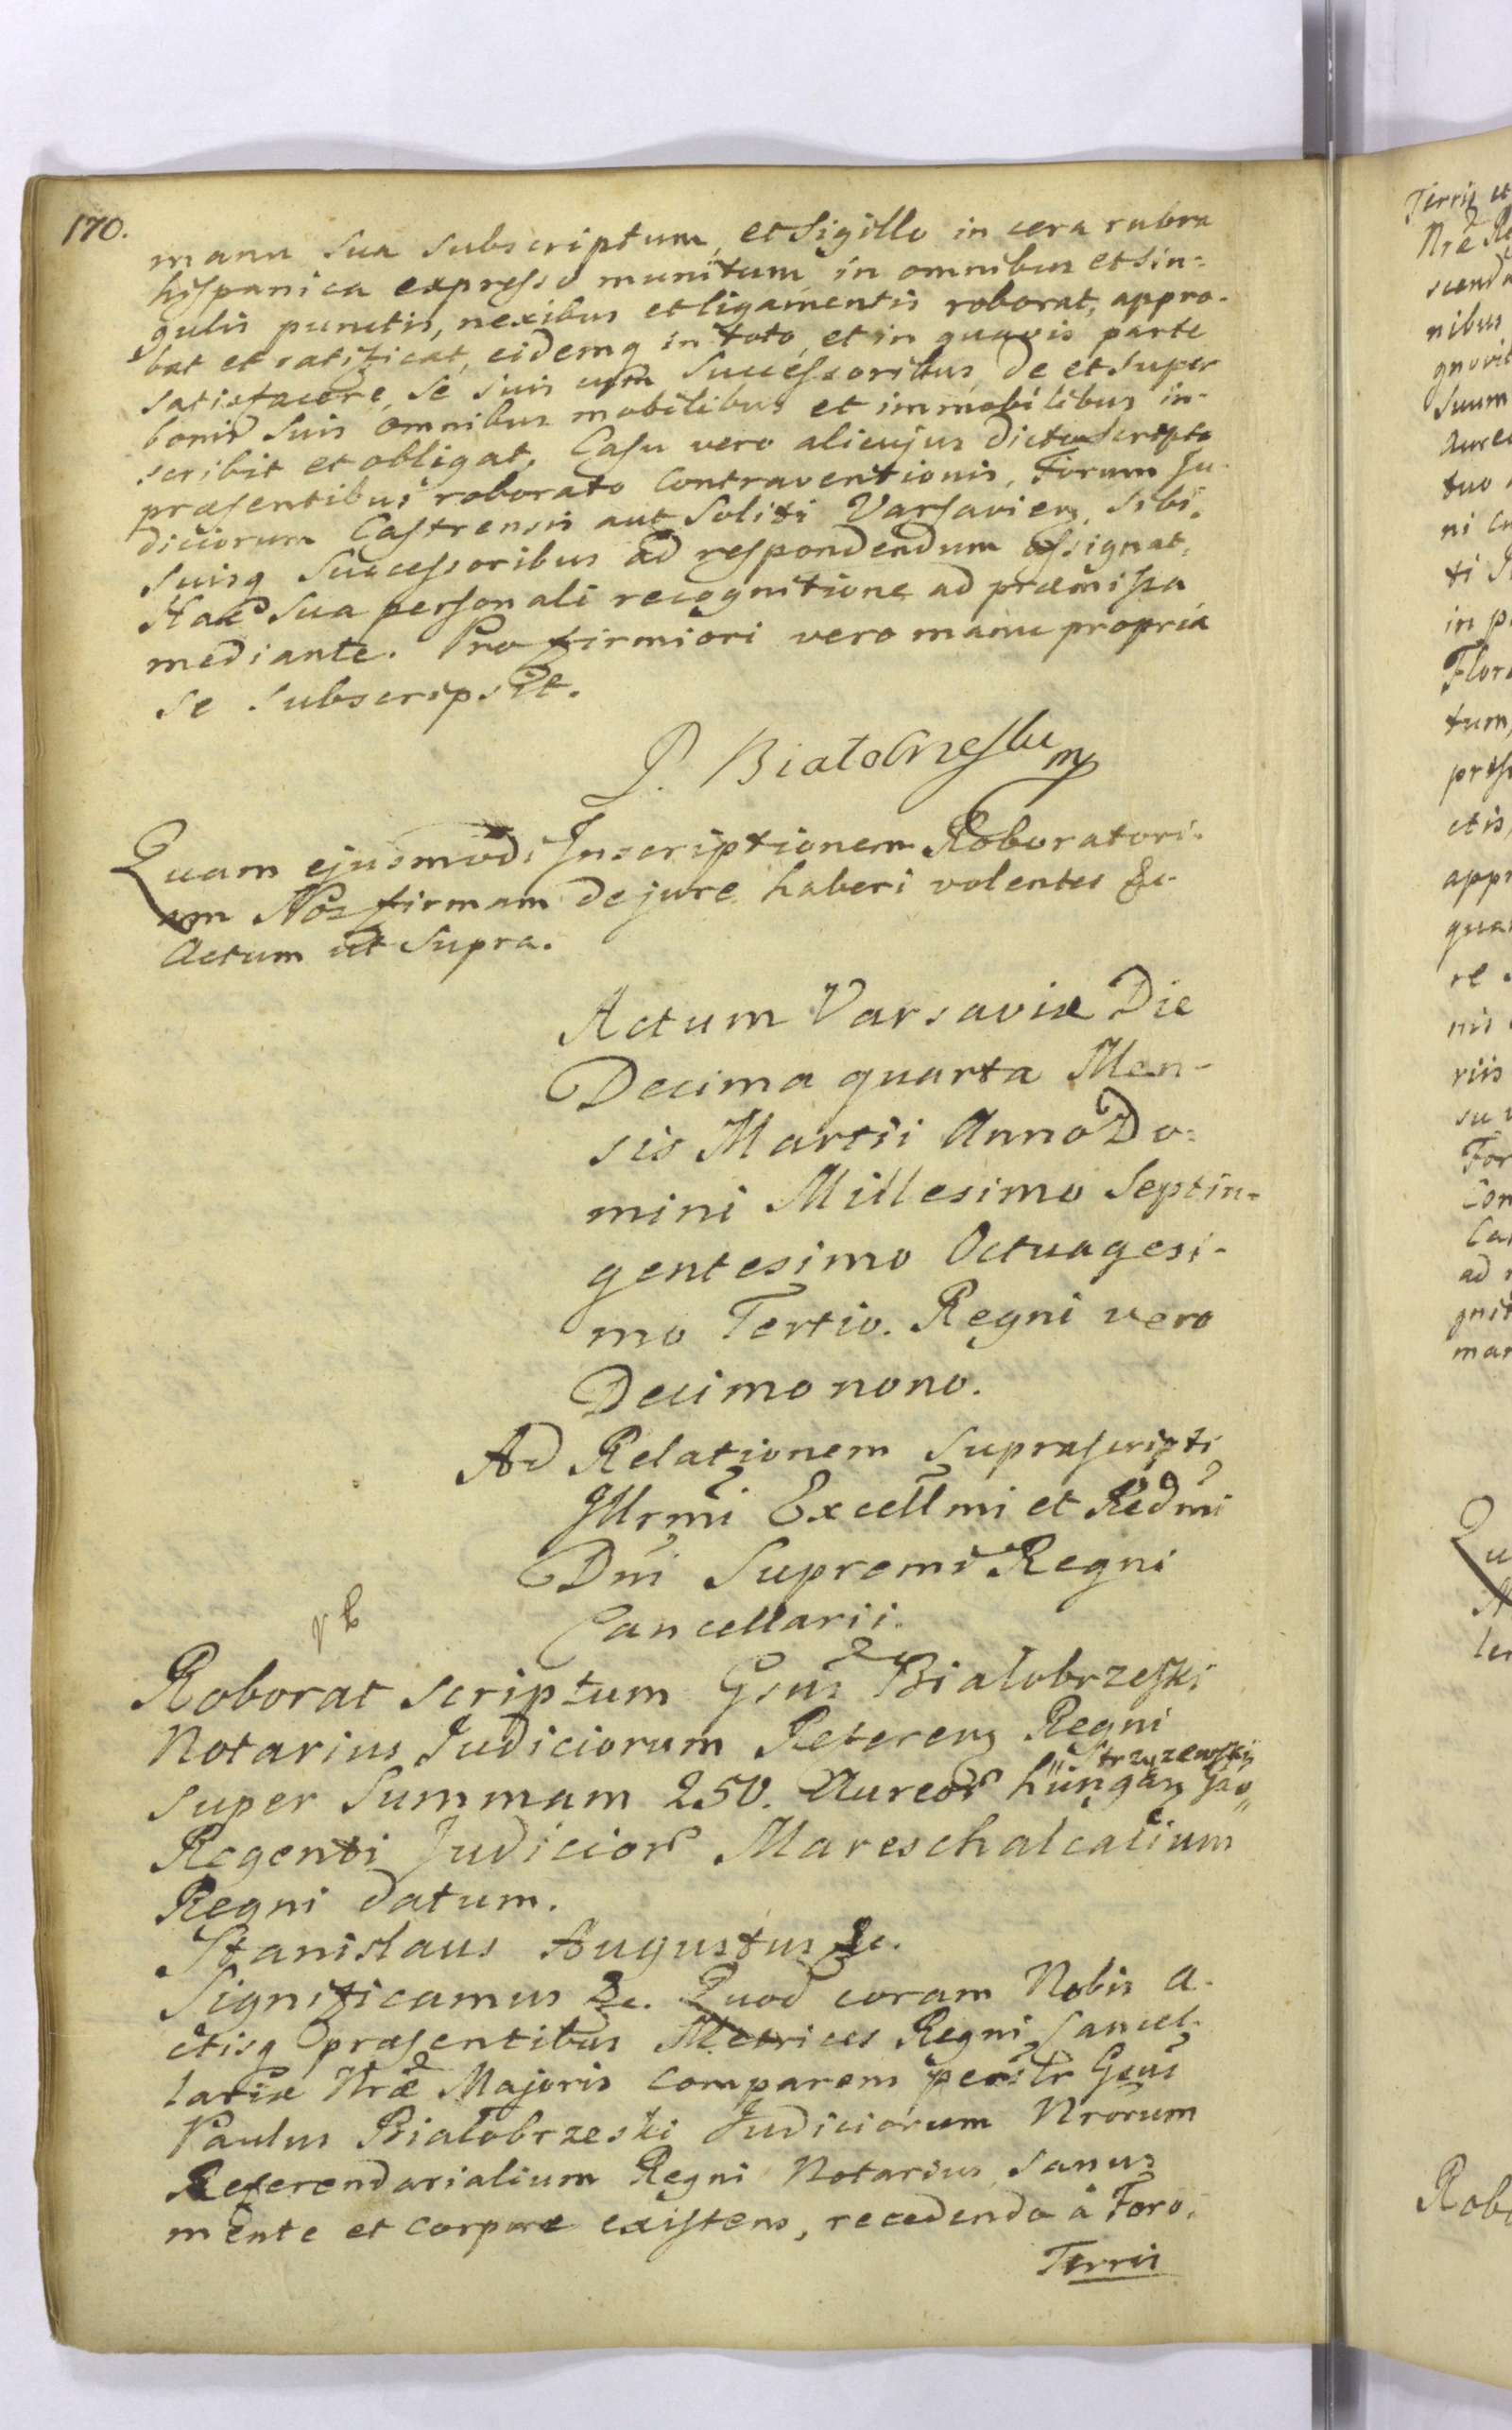 170.
manu sua subscriptum, et Sigillo in cera rubra
hispanica expresso munitum in omnibus et sin=
gulis punctis, nexibus et ligamentis roborat, appro-
bat et ratificat, eidemq in toto, et in quavis parte
satisfacere, se suis cum Successoribus, de et super
bonis suis omnibus mobilibus et immobilibus in-
scribit et obligat. Casu vero alicujus dicto Scripto
præsentibus roborato Contraventionis, Forum Ju-
diciorum Castrensis aut Soliti Varsavien, sibi,
Suisq Successoribus ad respondendum assignat,
Hac sua personali recognitione ad præmissa
mediante. Pro firmiori vero manu propria
se subscripsit.
P. Białobrzeski mp
Quam ejusmodi Inscriptionem Roboratori-
am Nos firmam de jure haberi volentes &c
Actum ut Supra.
Actum Varsaviæ Die
Decima quarta Men-
sis Martii Anno Do=
mini Millesimo Septin-
gentesimo Octuagesi-
mo Tertio. Regni vero
Decimo nono.
Ad Relationem Suprascripti
Illrmi Excellmi et Rēdmi
Dni Supremi Regni
Cancellarii.
Roborat scriptum Gsus Białobrzeski
Notarius Judiciorum Referen Regni
Strzyzewski
super Summam 250. Aureor hungar Gso
Regenti Judicior Mareschalcalium
Regni datum.
Stanislaus Augustus &c.
Significamus &c. Quod coram Nobis A-
ctisq præsentibus Metrices Regni Cancel-
lariæ Nræ Majoris Comparens perslr Gsus
Paulus Białobrzeski Judiciorum Nrorum
Referendarialium Regni Notarius, sanus
mente et corpore existens, recedendo à Foro.
Terris
Terris et
nibus
Suum